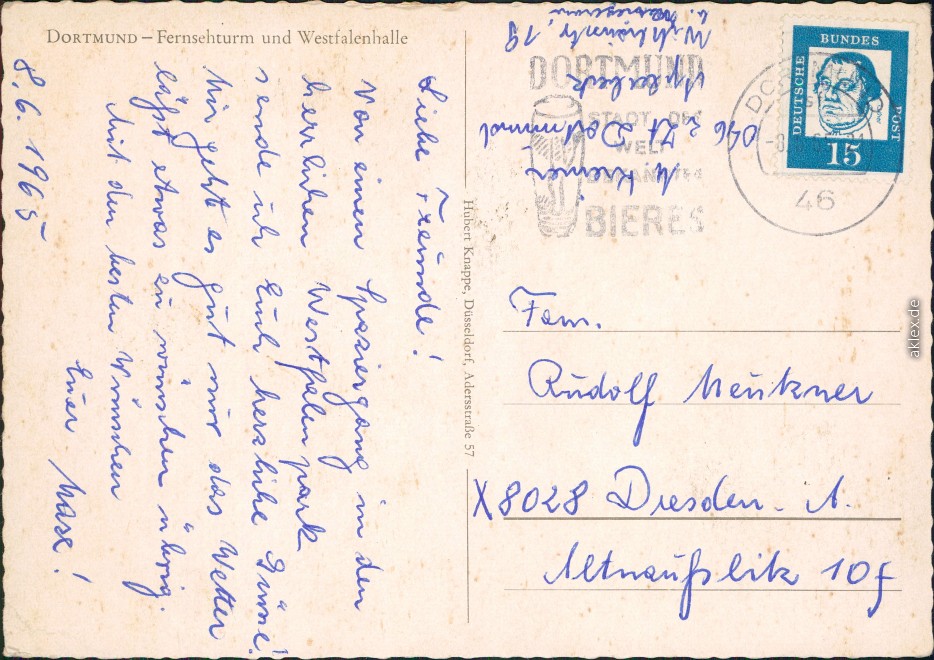 DORTMUND – Fernsehturm und Westfalenhalle
8.6.1965
Liebe Freunde!
Von einem Spaziergang in den
herrlichen Westfalenpark
sende ich Euch herzliche Grüße!
Mir geht es gut nur das Wetter
läßt etwas zu wünschen übrig.
Mit den besten Wünschen
Euer Maxe!
Hubert Knappe, Düsseldorf, Adersstraße 57
46 Dortmund
DORTMUND
STADT DES
WELT
BEKANNTEN
BIERES
46
DEUTSCHE
BUNDES
POST
15
Fam.
Rudolf Meukner
X8028 Dresden. A.
Altnaußlitz 10f
aklex.de